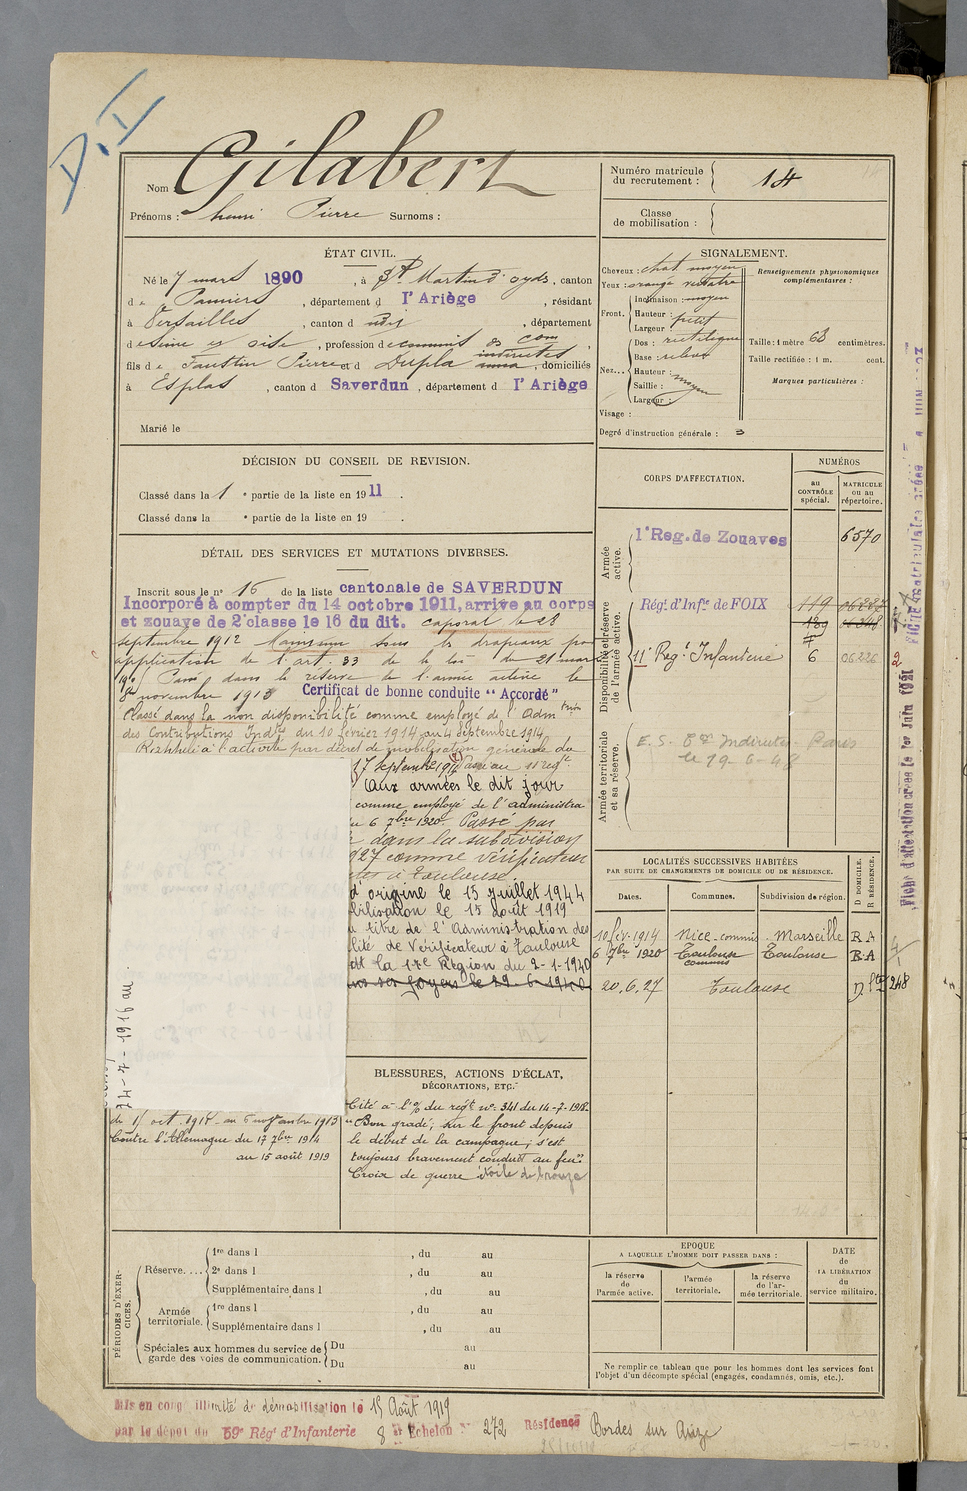 D.I
Nom : Gilabert
Prénoms : henri Pierre Surnoms :
Numéro matricule du recrutement : 14
Classe de mobilisation :
ÉTAT CIVIL.
Né le 7 mars 1890, à St Martin d'oyds, canton
de Pamiers, département d l'Ariège, résidant
à Versailles, canton d udit, département
d eseine et oise, profession de commis os com
indirectes
fils de Faustin Pierre et d Dupla, domiciliés
à Esplas, canton d Saverdun, département d l'Ariège
Marié le
SIGNALEMENT.
Cheveux : chat moyen
Yeux : orange verdatre
Front. Inclinaison : moyen
Hauteur : petit
Largeur :
Nez... Dos : rectiligne
Base : relevé
Hauteur :
Saillie : moyen
Largeur :
Visage :
Degré d'instruction générale : 3
Renseignements physionomiques complémentaires :
Taille : 1 mètre 68 centimètres.
Taille rectifiée : 1 m. cent.
Marques particulières :
DÉCISION DU CONSEIL DE REVISION.
Classé dans la 1 e partie de la liste en 1911.
Classé dans la e partie de la liste en 19 .
DÉTAIL DES SERVICES ET MUTATIONS DIVERSES.
Inscrit sous le n° 16 de la liste cantonale de SAVERDUN
Incorporé à compter du 14 octobre 1911, arrivé au corps
et zouave de 2e classe le 16 du dit. caporal le 28
septembre 1912 Maintenu sous les drapeaux par
application de l'art. 33 de la loi du 21 mars
190 Passé dans la réserve de l'armée active le
8 novembre 1913 Certificat de bonne conduite "Accordé"
Classé dans la non disponibilité comme employé de l'Admtion
des Contributions Indtes du 10 février 1914 au 4 Septembre 1914
Rappelé à l'activité par décret de mobilisation générale du
17 septembre 1914 Passé au 11 régt
Aux armées le dit jour
comme employé de l'administra
u 6 7bre 1920. Passé par
dans la subdivision
927 comme vérificateur
à Toulouse.
d'origine le 15 Juillet 1944
bilisation le 15 août 1919
u titre de l'Administration des
lité de Vérificateur à Toulouse
dt la 17e Région du 2-1-1940
ans ses foyers le 29-6-1940
24-7-1916 au
de 1 oct. 1911 au 8 novembre 1913
Contre l'Allemagne du 17 7bre 1914
au 15 août 1919
BLESSURES, ACTIONS D'ÉCLAT,
DÉCORATIONS, ETC.
Cité à l'o/ du régt n° 341 du 14-7-1918
"Bon gradé, sur le front depuis
le début de la campagne, s'est
toujours bravement conduit au feu".
Croix de guerre étoile de bronze
CORPS D'AFFECTATION.
NUMÉROS
au CONTRÔLE spécial.
MATRICULE ou au répertoire.
Armée active.
1e Reg. de Zouaves 6570
Disponibilité et réserve de l'armée active.
Régt d'Infie de FOIX 119
189
11e Regt Infanterie 6 06226
Armée territoriale et sa réserve.
E.S. Cons Indirectes - Paris
le 19-6-48
LOCALITÉS SUCCESSIVES HABITÉES
PAR SUITE DE CHANGEMENTS DE DOMICILE OU DE RÉSIDENCE.
Dates. Communes. Subdivision de région. D DOMICILE. R RÉSIDENCE.
10 fév. 1914 Nice - commis Marseille R A
6 7bre 1920 Toulouse commis Toulouse R A
20.6.27 Toulouse 248
Fiche d'affectation créée le 1er Juin 1921
PÉRIODES D'EXERCICES.
Réserve.... 1re dans l , du au
2e dans l , du au
Supplémentaire dans l , du au
Armée territoriale. 1re dans l , du au
Supplémentaire dans l , du au
Spéciales aux hommes du service de garde des voies de communication. Du au
Du au
EPOQUE
A LAQUELLE L'HOMME DOIT PASSER DANS :
la réserve de l'armée active.
l'armée territoriale.
la réserve de l'armée territoriale.
DATE de LA LIBÉRATION du service militaire.
Ne remplir ce tableau que pour les hommes dont les services font
l'objet d'un décompte spécial (engagés, condamnés, omis, etc.).
Mis en congé illimité de démobilisation le 15 Août 1919
par le dépot du 59e Régt d'Infanterie 8 e Echelon N° 272 Résidence Bordes sur Arize